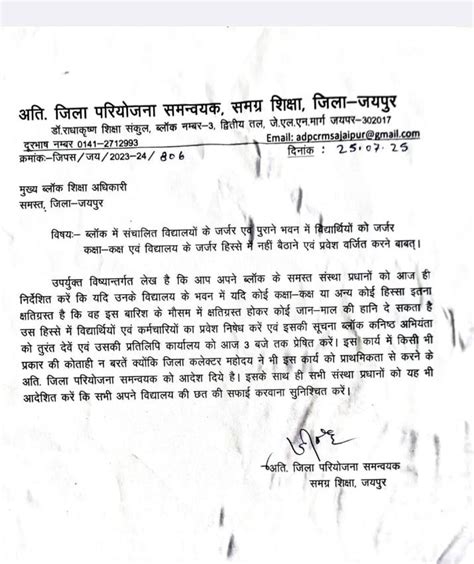 अति. जिला परियोजना समन्वयक, समग्र शिक्षा, जिला–जयपुर
डॉ.राधाकृष्ण शिक्षा संकुल, ब्लॉक नम्बर–3, द्वितीय तल, जे.एल.एन.मार्ग जयपुर–302017
दूरभाष नम्बर 0141–2712993 Email: adpcrmsajaipur@gmail.com
क्रमांकः–जिपस/जय/2023-24/ 806 दिनांक : 25.07.25
मुख्य ब्लॉक शिक्षा अधिकारी
समस्त, जिला–जयपुर
विषयः– ब्लॉक में संचालित विद्यालयों के जर्जर एवं पुराने भवन में विद्यार्थियों को जर्जर
कक्षा–कक्ष एवं विद्यालय के जर्जर हिस्से में नहीं बैठाने एवं प्रवेश वर्जित करने बाबत्।
उपर्युक्त विषयान्तर्गत लेख है कि आप अपने ब्लॉक के समस्त संस्था प्रधानों को आज ही
निर्देशित करें कि यदि उनके विद्यालय के भवन में यदि कोई कक्षा–कक्ष या अन्य कोई हिस्सा इतना
क्षतिग्रस्त है कि वह इस बारिश के मौसम में क्षतिग्रस्त होकर कोई जान–माल की हानि दे सकता है
उस हिस्से में विद्यार्थियों एवं कर्मचारियों का प्रवेश निषेध करें एवं इसकी सूचना ब्लॉक कनिष्ठ अभियंता
को तुरंत देवें एवं उसकी प्रतिलिपि कार्यालय को आज 3 बजे तक प्रेषित करें। इस कार्य में किसी भी
प्रकार की कोताही न बरतें क्योंकि जिला कलेक्टर महोदय ने भी इस कार्य को प्राथमिकता से करने के
अति. जिला परियोजना समन्वयक को आदेश दिये है। इसके साथ ही सभी संस्था प्रधानों को यह भी
आदेशित करें कि सभी अपने विद्यालय की छत की सफाई करवाना सुनिश्चित करें।
अति. जिला परियोजना समन्वयक
समग्र शिक्षा, जयपुर